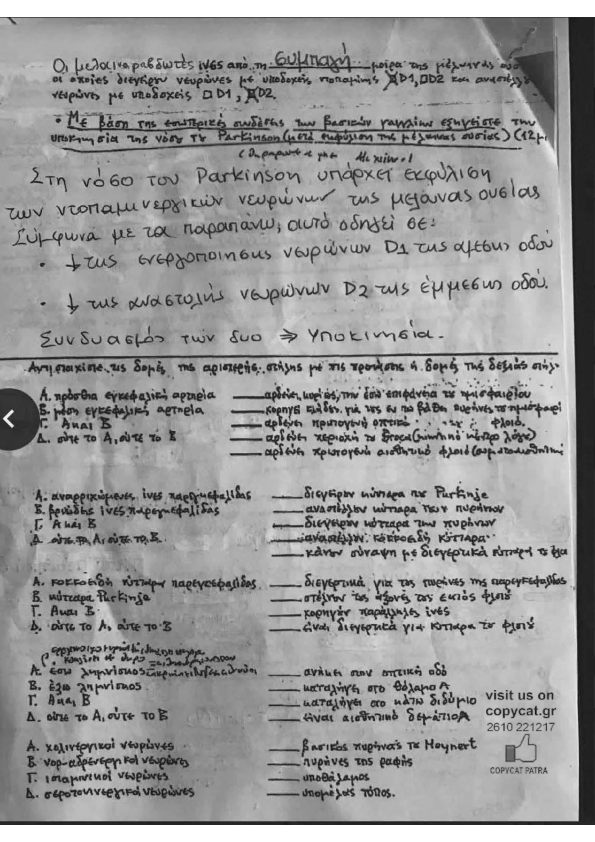 Οι μελαινοραβδωτές ίνες από τη συμπαγή μοίρα της μέλαινας ουσ
οι οποίες διεγείρουν νευρώνες με υποδοχείς ντοπαμίνης ☒D1, ☐D2 και αναστέλλ
νευρώνες με υποδοχείς ☐ D1, ☒D2
• Με βάση της εσωτερικές συνδέσεις των βασικών γαγγλίων εξηγείστε την
υποκινησία της νόσου του Parkinson (μετά εκφύλιση της μέλαινας ουσίας) (12μ
Στη νόσο του Parkinson υπάρχει εκφύλιση
των ντοπαμινεργικών νευρώνων της μέλανας ουσίας
Σύμφωνα με τα παραπάνω, αυτό οδηγεί σε:
• ↓ της ενεργοποίησης νευρώνων D1 της άμεσης οδού
• ↓ της αναστολής νευρώνων D2 της έμμεσης οδού.
Συνδυασμός των δυο ⇒ Υποκινησία.
Αντιστοιχίσε τις δομές της αριστερής στήλης με τις προτάσεις ή δομές της δεξιάς στήλ
Α. πρόσθια εγκεφαλική αρτηρία ___ αρδεύει κυρίως την έσω επιφάνεια του ημισφαιρίου
Β. μέση εγκεφαλική αρτηρία ___ χορηγεί κλάδους για τους εν τω βάθει πυρήνες του ημισφαιρί
Γ. Α και Β ___ αρδεύει πρωτογενή οπτικό φλοιό.
Δ. ούτε το Α, ούτε το Β ___ αρδεύει περιοχή του Broca (κινητικό κέντρο λόγου)
___ αρδεύει πρωτογενή αισθητικό φλοιό (σωματοαισθητική
Α. αναρριχώμενες ίνες παρεγκεφαλίδας ___ διεγείρουν κύτταρα του Purkinje
Β. βρυώδεις ίνες παρεγκεφαλίδας ___ αναστέλλουν κύτταρα των πυρήνων
Γ. Α και Β ___ διεγείρουν κύτταρα των πυρήνων
Δ. ούτε το Α, ούτε το Β. ___ αναστέλλουν κοκκοειδή κύτταρα
___ κάνουν σύναψη με διεγερτικά κύτταρα του φλοι
Α. κοκκοειδή κύτταρα παρεγκεφαλίδας ___ διεγερτικά για τους πυρήνες της παρεγκεφαλίδας
Β. κύτταρα Purkinje ___ στέλνουν τους άξονες τους εκτός φλοιού
Γ. Α και Β ___ χορηγούν παράλληλες ίνες
Δ. ούτε το Α, ούτε το Β ___ είναι διεγερτικά για κύτταρα του φλοιού
Α. έσω λημνίσκος ___ ανήκει στην οπτική οδό
Β. έξω λημνίσκος ___ καταλήγει στο θάλαμο Α
Γ. Α και Β ___ καταλήγει στο κάτω διδύμιο
Δ. ούτε το Α, ούτε το Β ___ είναι αισθητικό δεμάτιο Α
visit us on
copycat.gr
2610 221217
COPYCAT PATRA
Α. χολινεργικοί νευρώνες ___ βασικός πυρήνας του Meynert
Β. νορ-αδρενεργικοί νευρώνες ___ πυρήνες της ραφής
Γ. ισταμινικοί νευρώνες ___ υποθάλαμος
Δ. σεροτονινεργικοί νευρώνες ___ υπομέλας τόπος.